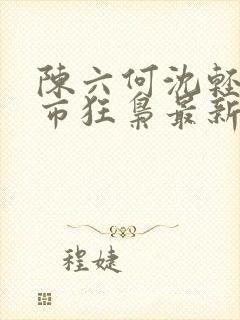 陳六何沈輕
市狂梟最新
程婕